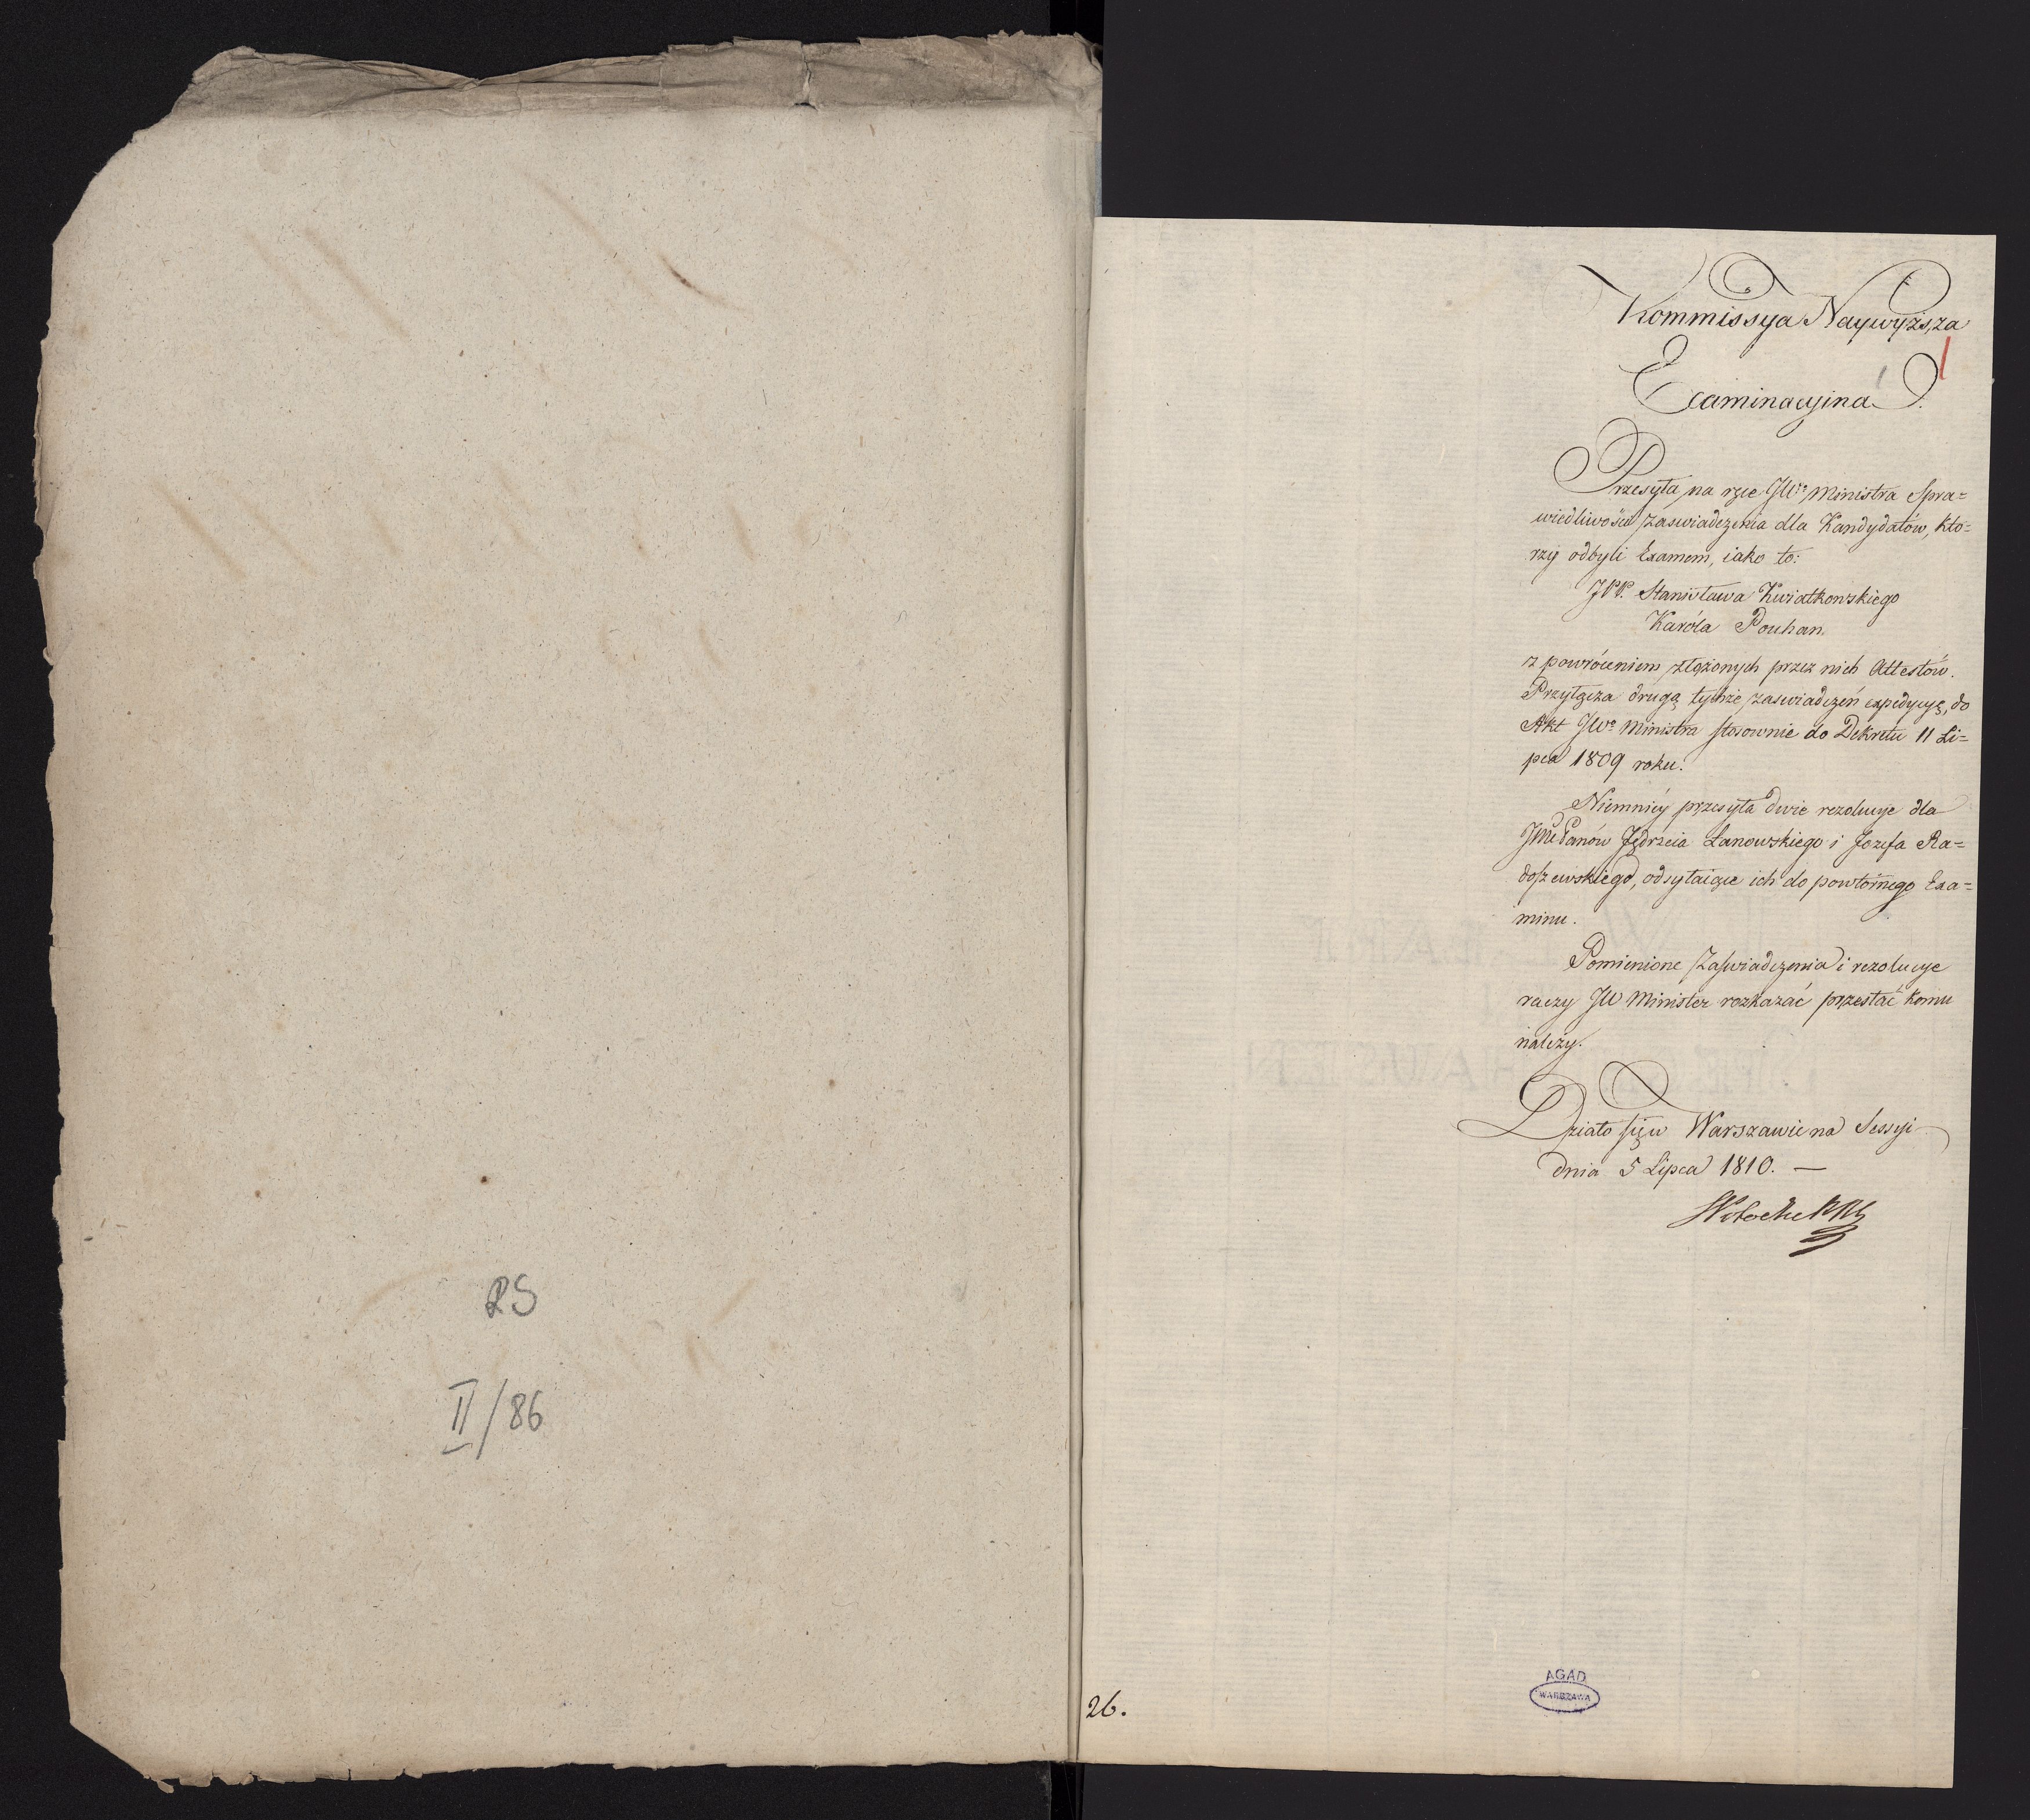 RS
II/86
Kommissya Naywyższa
1
1
Examinacyina
Przesyła na ręce JWo Ministra Spra=
wiedliwości zaswiadczenia dla Kandydatów, kto=
rzy odbyli Examen, iako to:
JPP. Stanisława Kwiatkowskiego
Karóla Pouhan
z powróceniem złożonych przez nich Attestów.
Przyłącza drugą tychże zaswiadczeń expedycyę, do
Akt JWo Ministra stosownie do Dekretu 11 Li=
pca 1809 roku.
Niemniéy przesyła dwie rezolucye dla
Panów Jędrzeia Łanowskiego i Jozefa Ra=
doszewskiego, odsyłaiące ich do powtórnego Exa=
minu.
Pomienione Zaswiadczenia i rezolucye
raczy JW Minister rozkazać przesłać komu
należy.
Działo się w Warszawie na Sessyi
dnia 5 Lipca 1810. —
26.
AGAD
WARSZAWA